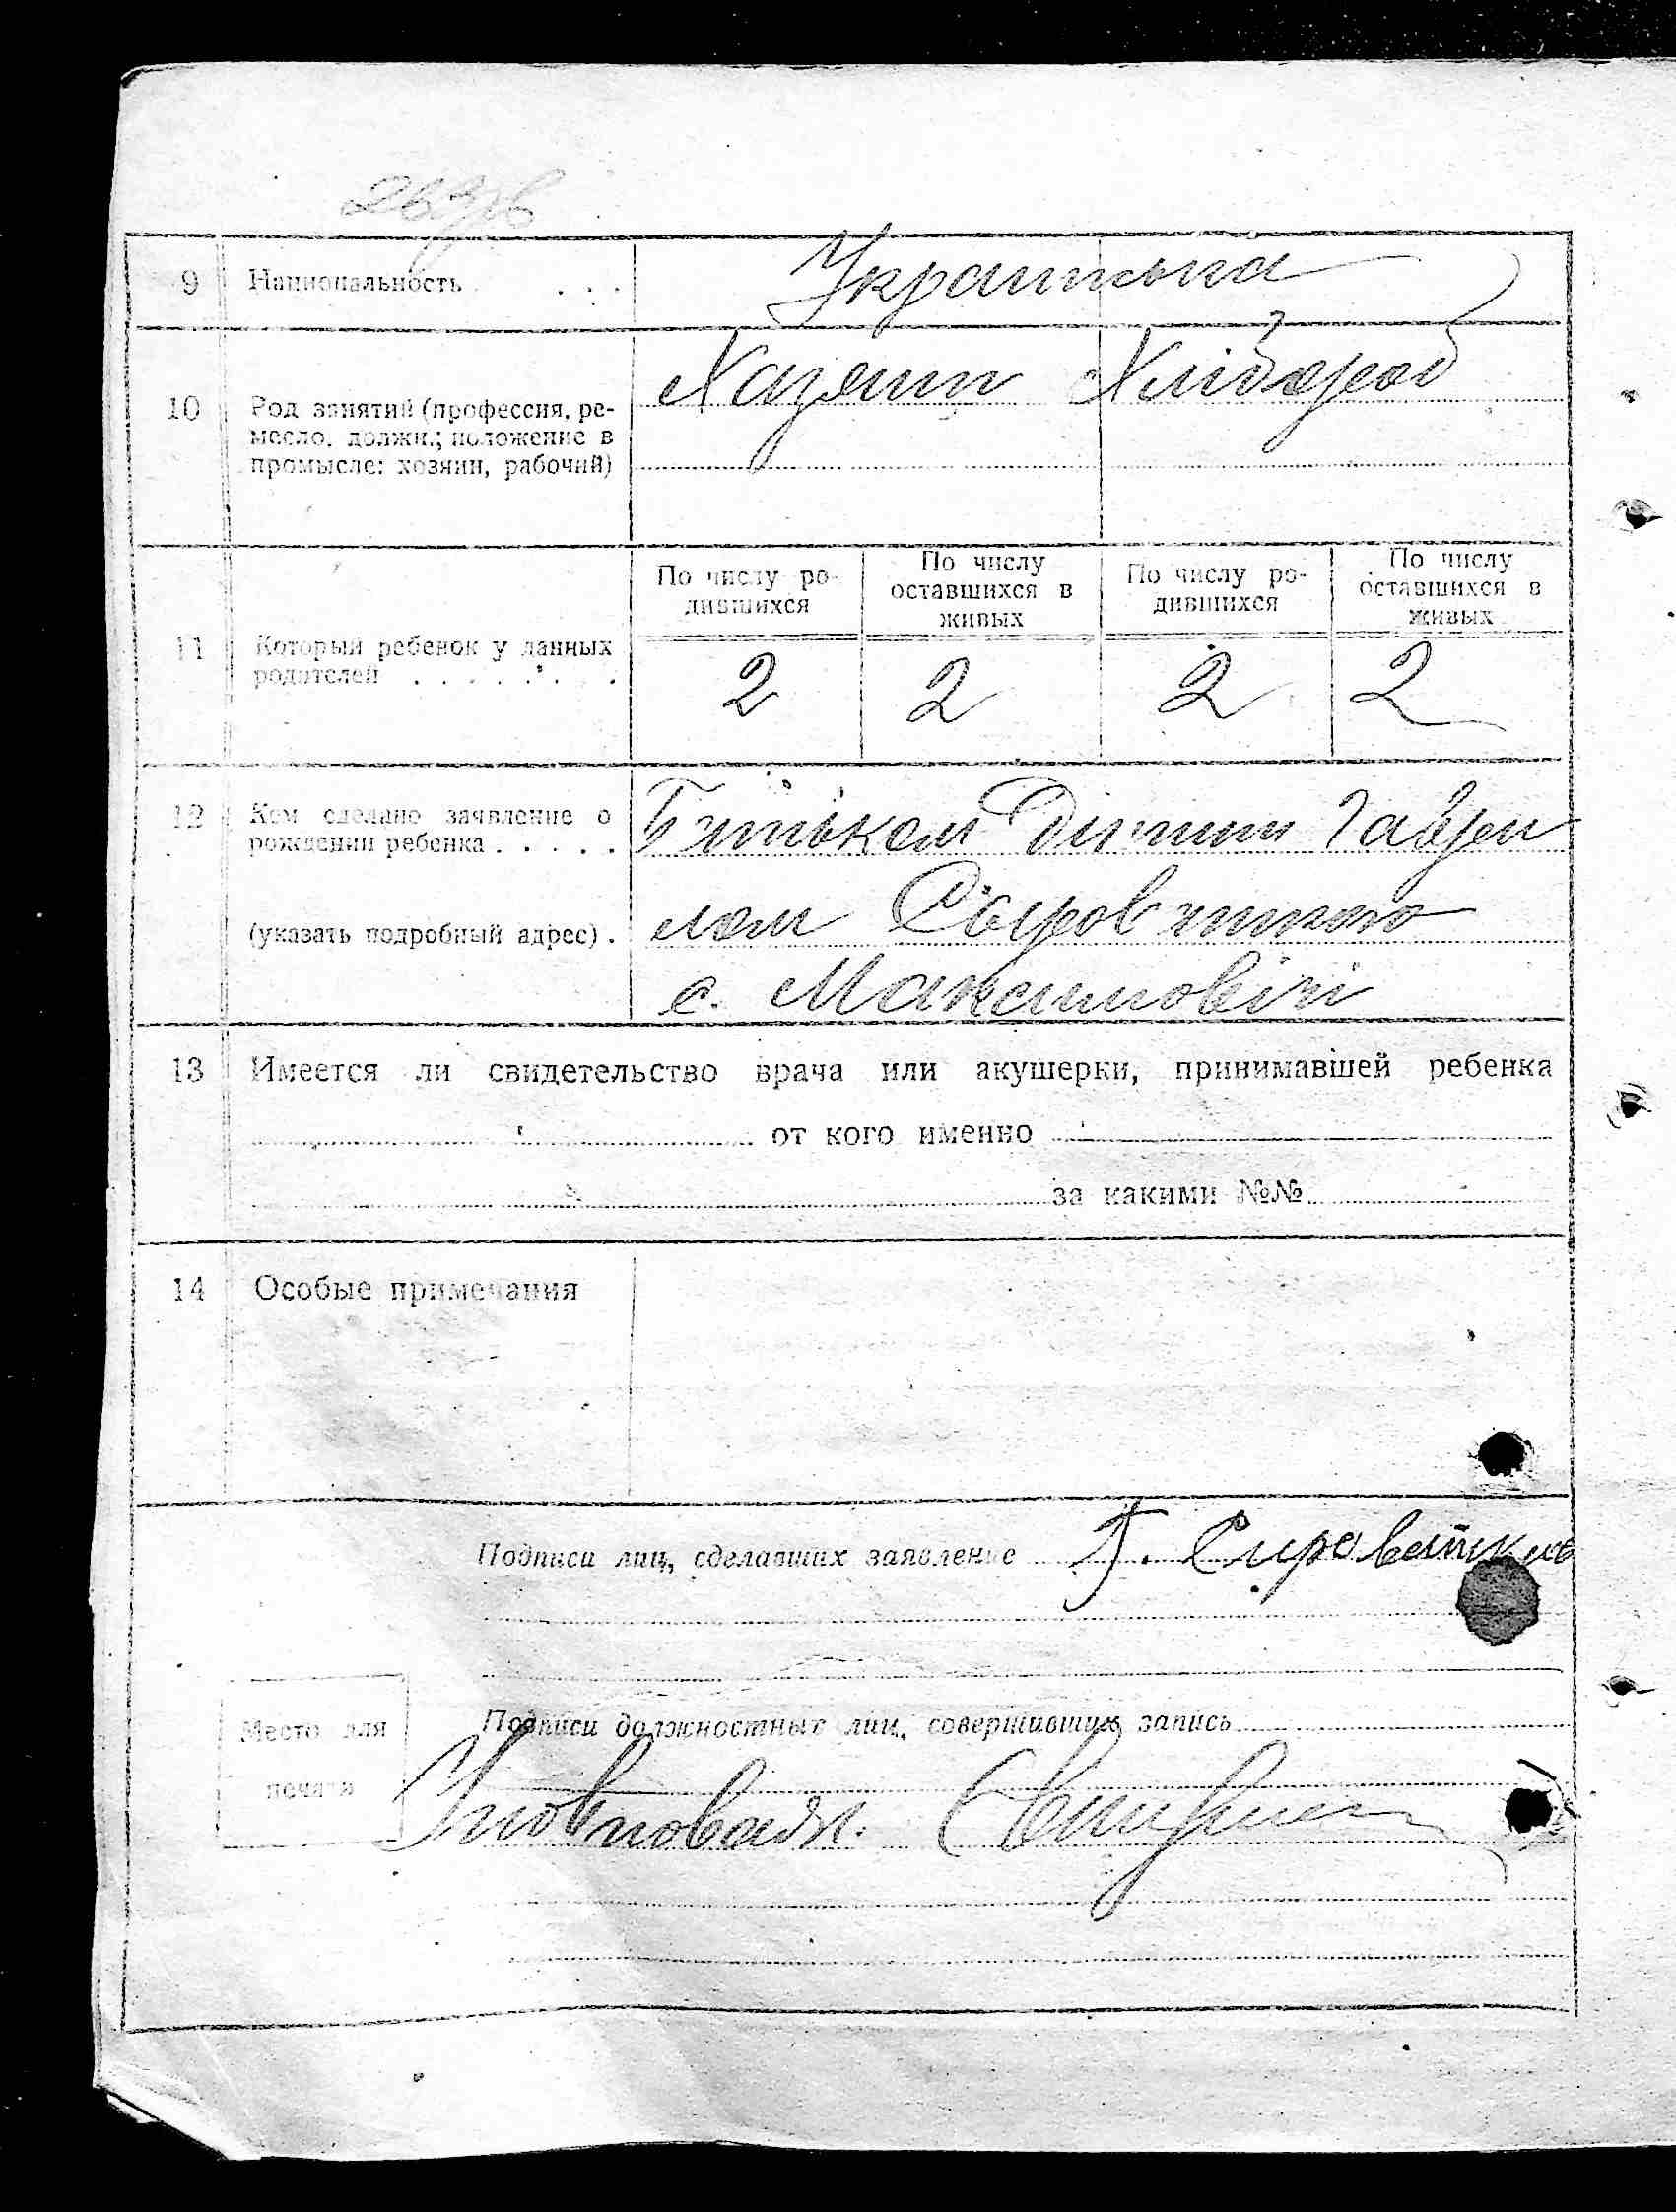 9 Национальность . . .
Українська
10 Род занятий (профессия, ре-
месло, должн.; положение в
промысле: хозяин, рабочий)
Хазяин Хлібороб
По числу ро-
дившихся
По числу
оставшихся в
живых
По числу ро-
дившихся
По числу
оставшихся в
живых
11 Который ребенок у данных
родителей . . . . . . .
2 2 2 2
12 Кем сделано заявление о
рождении ребенка . . . . .
(указать подробный адрес) .
Батьком Гаври
лом
с. Максимовічі
13 Имеется ли свидетельство врача или акушерки, принимавшей ребенка
от кого именно
за какими №№
14 Особые примечания
Подписи лиц, сделавших заявление
Место для
печати
Подписи должностных лиц, совершивших запись